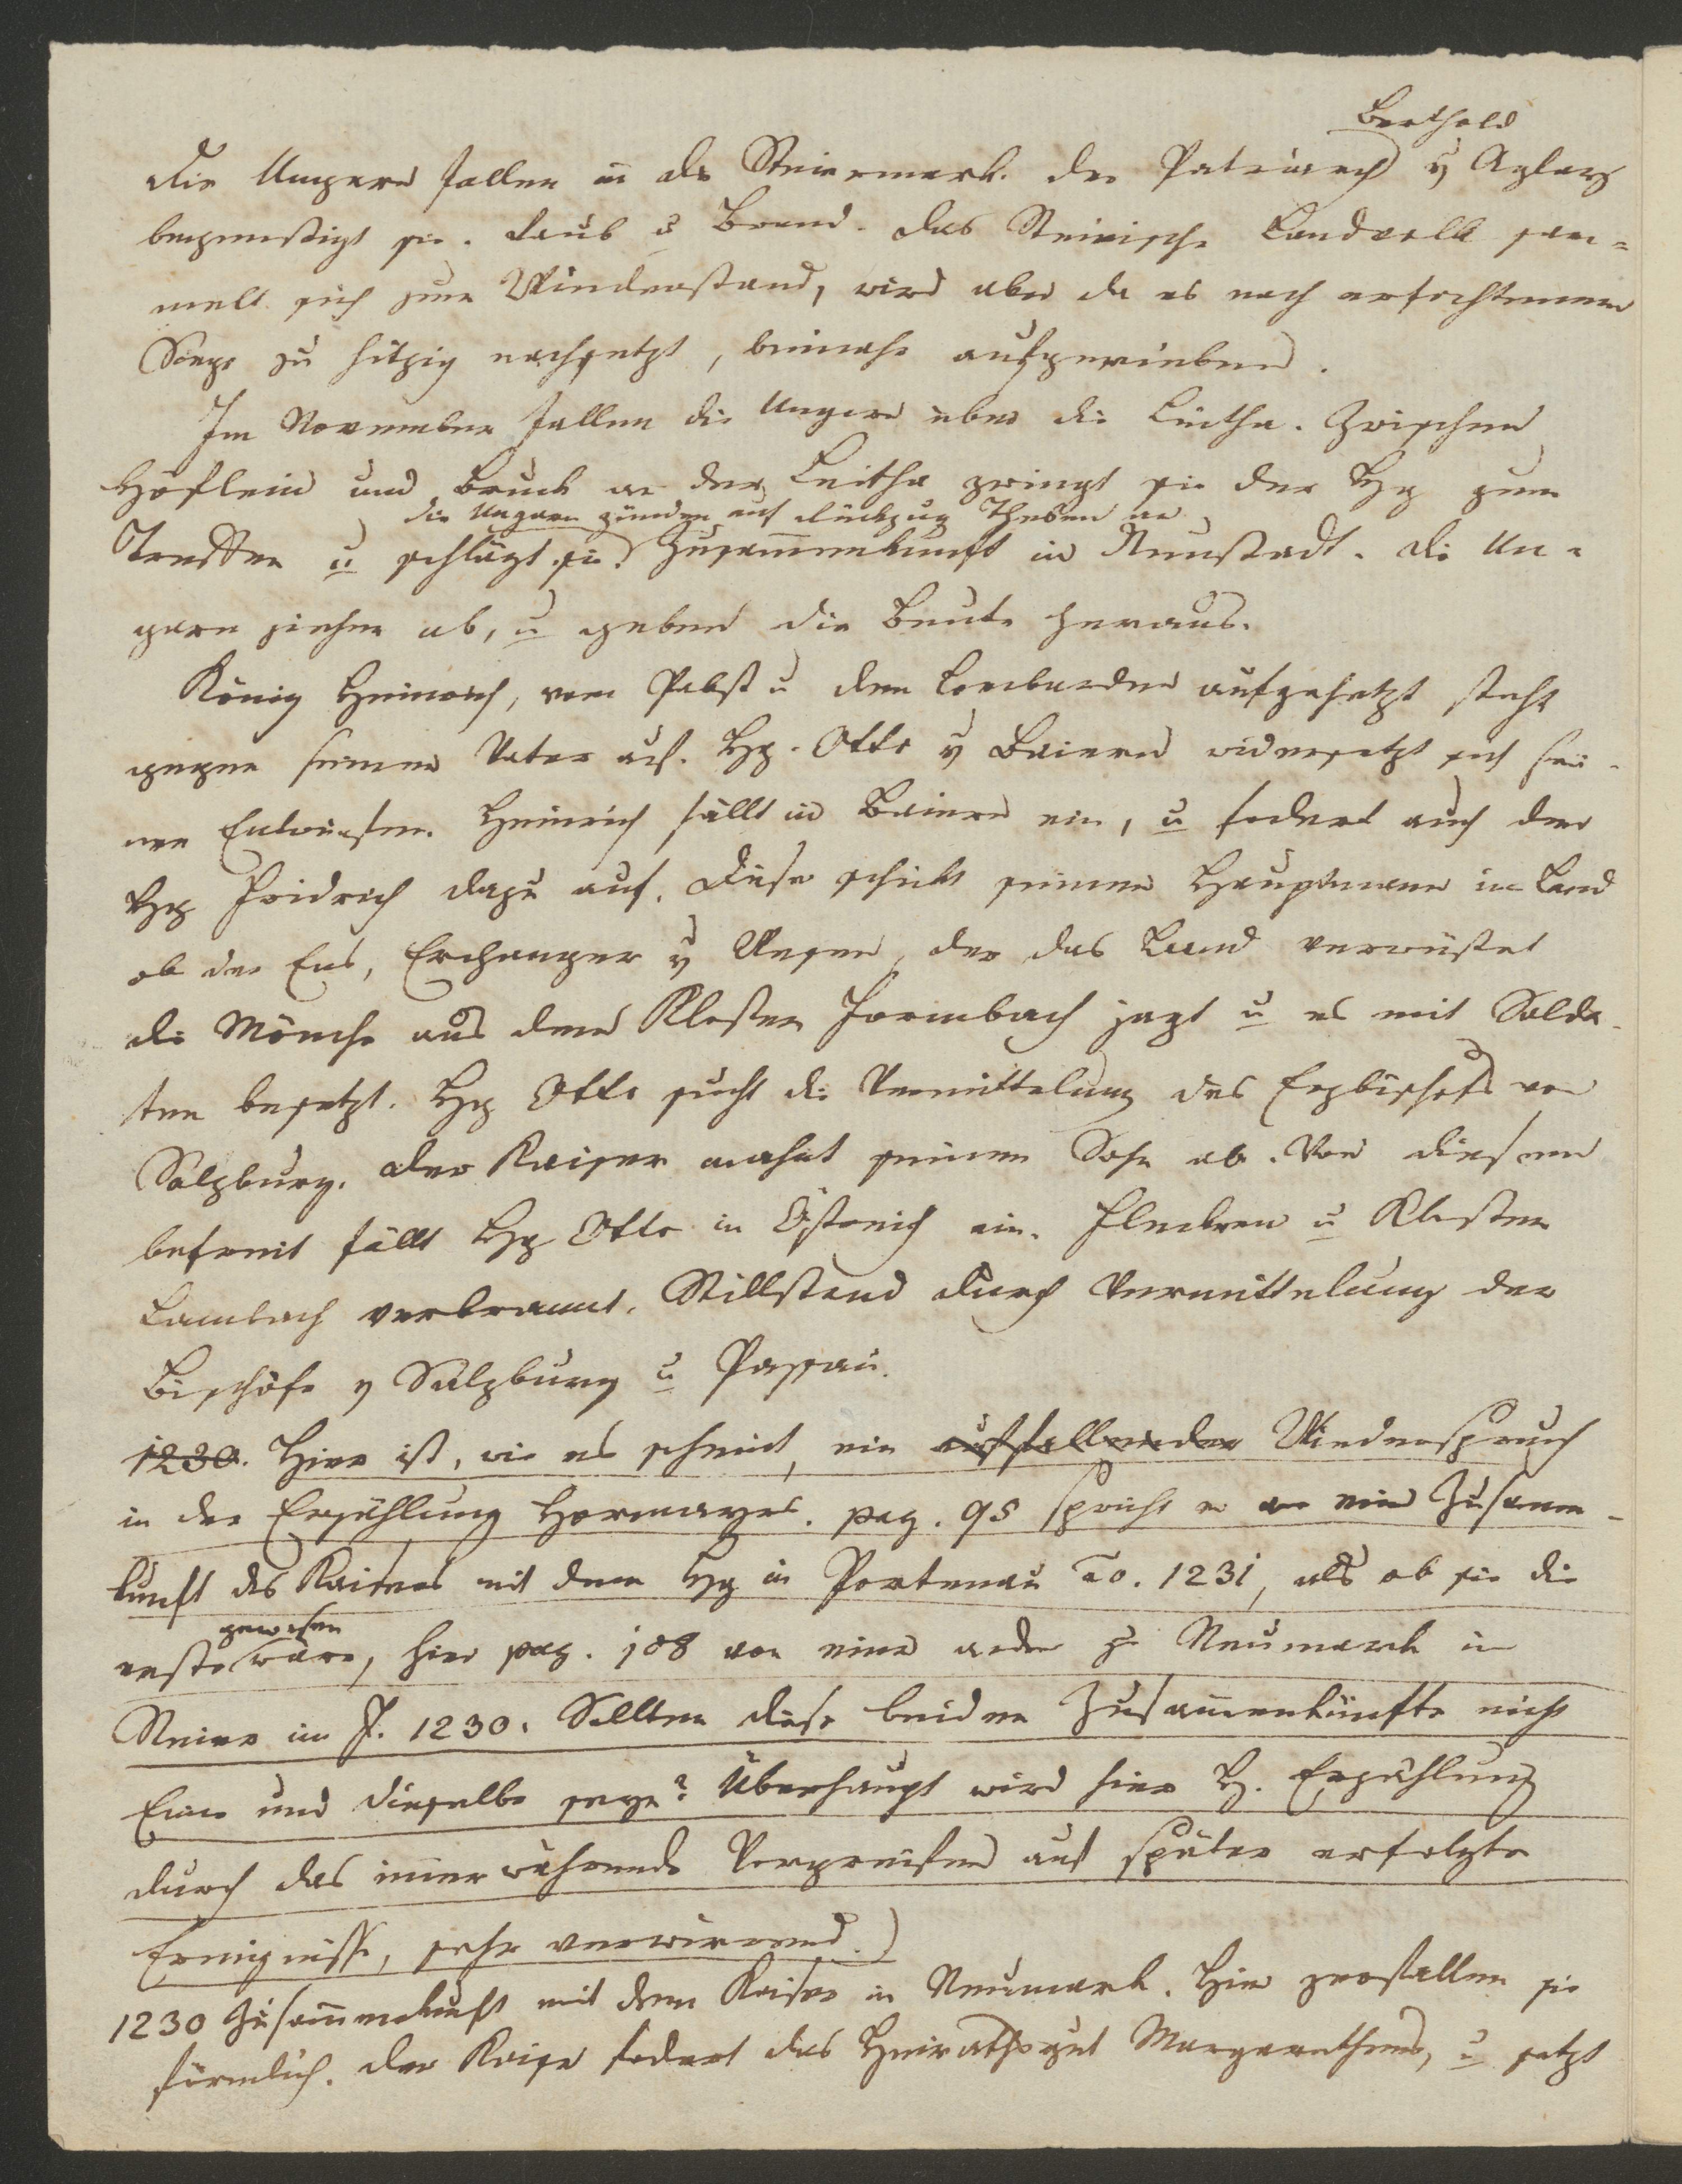 Berthold
Die Ungern fallen in die Steiermark. Der Patriarch v Aglarg
begünstigt sie. Raub u Brand. Das Steirische Landvolk sam=
melt sich zum Wiederstand, wird aber da es nach erfochtenem
Siege zu hitzig nachsetzt, beinahe aufgerieben.
Im November fallen die Ungern über die Leitha. Zwischen
Höflein und Bruck an der Leitha zwingt sie der Hzg zum
die Ungarn zünden auf Rückzug Theben an
Treffen u schlägt sie. Zusam̄enkunft in Neustadt. Die Un=
garn ziehen ab, u geben die Beute heraus.
König Heinrich, vom Pabst u den Lombarden aufgehetzt steht
gegen seinen Vater auf. Hzg. Otto v Baiern widersetzt sich sei-
nen Entwürfen. Heinrich fällt in Baiern ein, u fodert auch den
Hzg Fridrich dazu auf. Dieser schickt seinen Hauptmann im Land
ob der Ens, Erchanger v Wesen, der das Land verwüstet
die Mönche aus dem Kloster Formbach jagt u es mit Solda-
ten besetzt. Hzg Otto sucht die Vermittelung des Erzbischofs von
Salzburg. Der Kaiser mahnt seinen Sohn ab. Von diesem
befreit fällt Hzg Otto in Östreich ein. Flecken u Kloster
Lambach verbrannt. Stillstand durch Vermittelung der
Bischöfe v Salzburg u Passau.
1230. Hier ist, wie es scheint, ein auffallender Wiederspruch
in der Erzählung Hormayrs. pag. 95 spricht er von einer Zusamm-
kunft des Kaisers mit dem Hzg in Portenau ao. 1231, als ob sie die
gewesen
erste wäre, hier pag. 108 von einer andern zu Neumark in
Steier im J. 1230. Sollten diese beiden Zusam̄enkünfte nicht
Eine und dieselbe seyn? Überhaupt wird hier H. Erzählung
durch das im̄erwährende Vorgreifen auf später erfolgte
Ereignisse, sehr verwirrend.)
1230 Zusam̄enkunft mit dem Kaiser in Neumark. Hier zerfallen sie
förmlich. Der Kaiser fodert das Heirathsgut Margarethens, u setzt